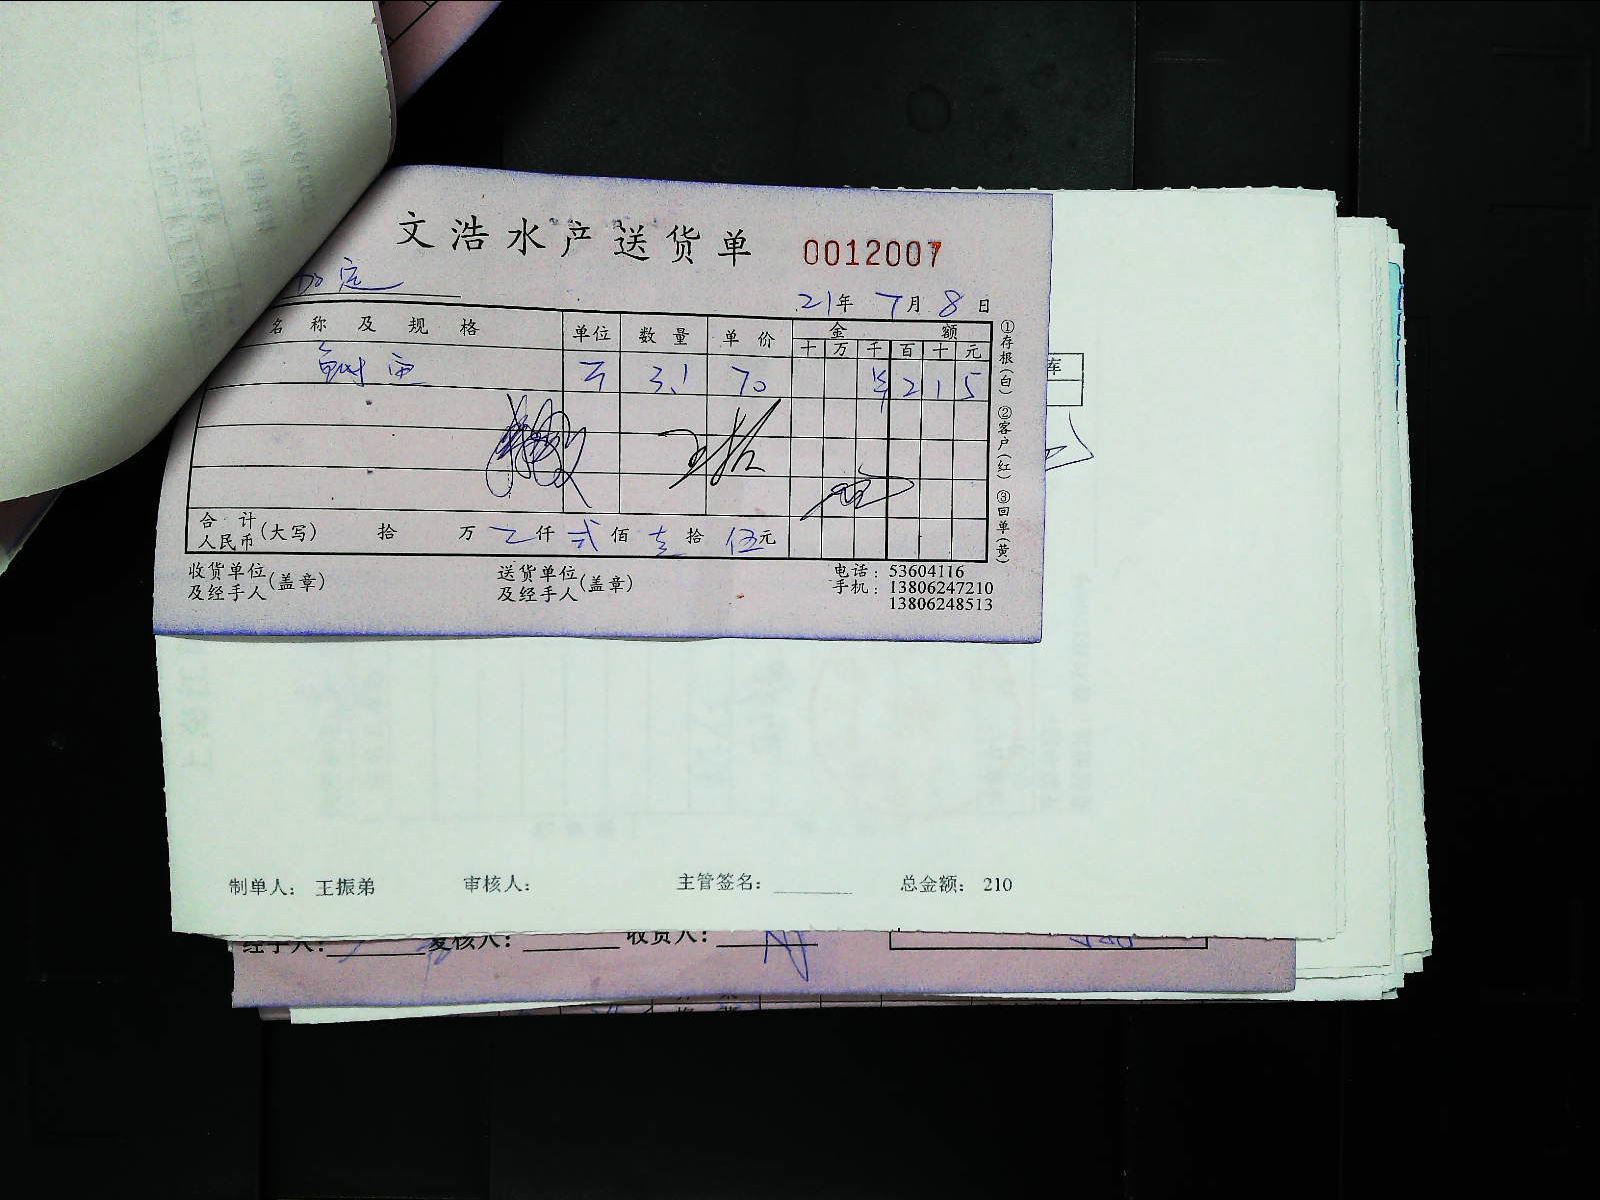 文浩水产送货单 0012007
加定
21年 7月 8日
名称及规格 单位 数量 单价 金额
十 万 千 百 十 元
3.1 70 ¥ 2 1 5
合计人民币(大写) 拾 万 仟 弍 佰 壹 拾 伍 元
收货单位及经手人(盖章) 送货单位及经手人(盖章)
电话：53604116
手机：13806247210
13806248513
①存根(白) ②客户(红) ③回单(黄)
车
制单人： 王振弟 审核人： 主管签名： 总金额： 210
经手人： 复核人： 收货人：